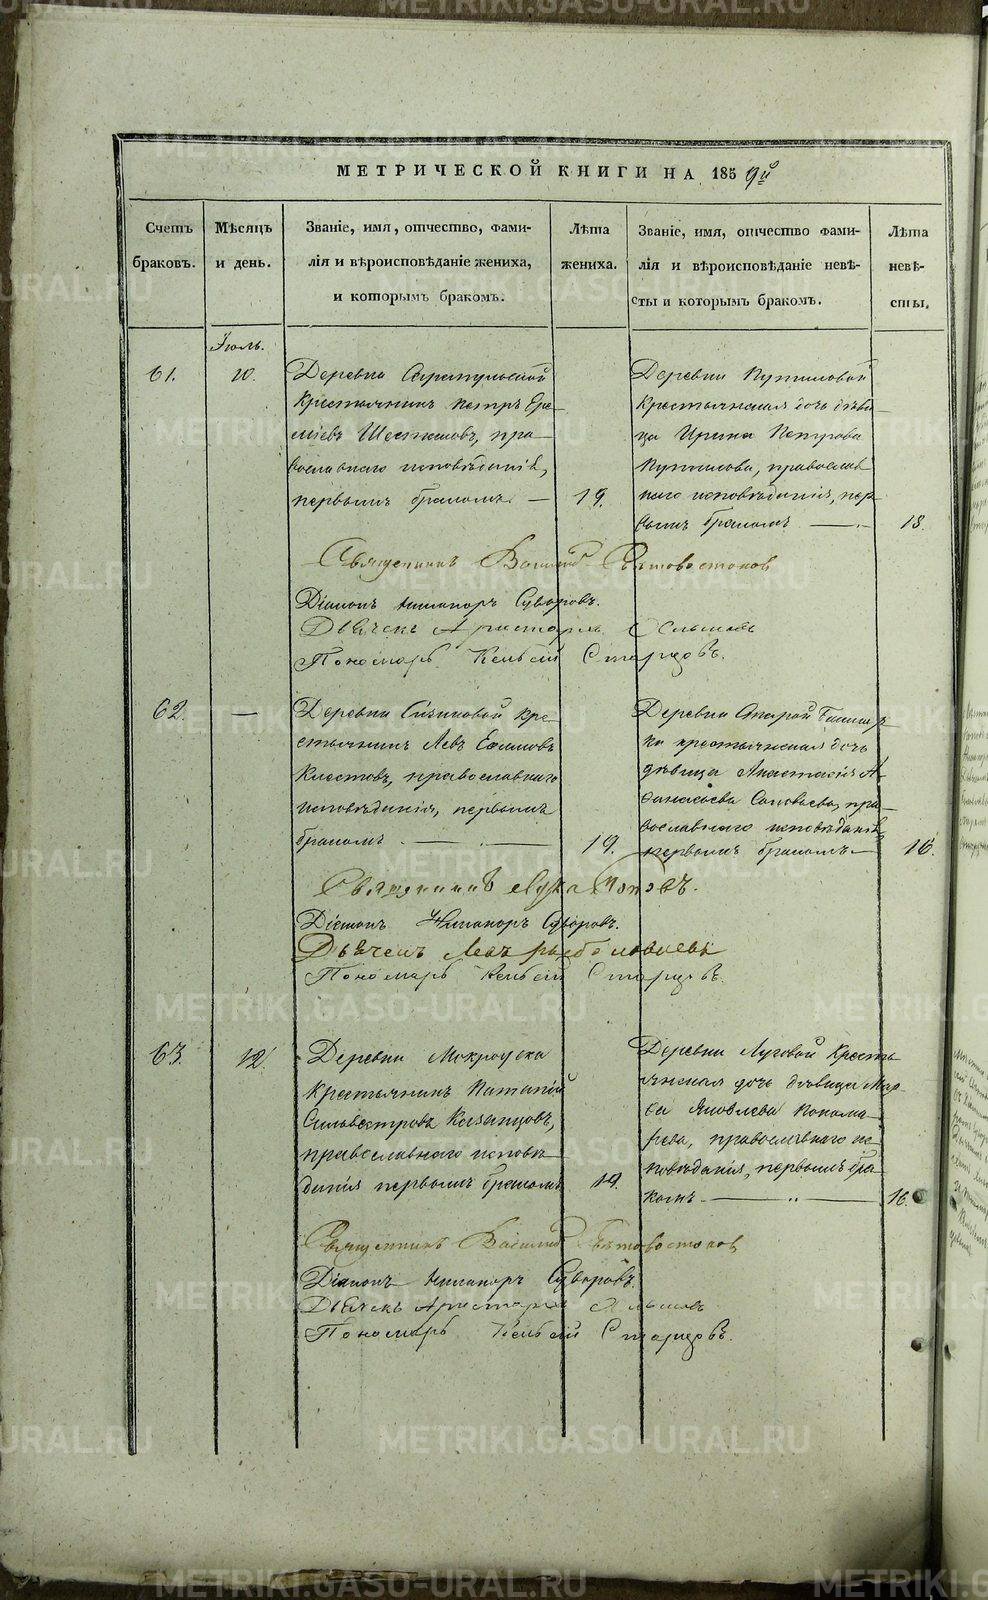 МЕТРИЧЕСКОЙ КНИГИ НА 1859й
Счетъ браковъ.
Мѣсяцъ и день.
Званіе, имя, отчество, фами-
лія и вѣроисповѣданіе жениха,
и которымъ бракомъ.
Лѣта жениха.
Званіе, имя, отчество фами-
лія и вѣроисповѣданіе невѣ-
сты и которымъ бракомъ.
Лѣта невѣ-
сты.
Іюль.
61.
10.
Деревни
Крестьянинъ Петръ Ере-
меѣвъ Шестаковъ, пра-
вославнаго исповѣданія,
первымъ бракомъ —
19.
Деревни Путиловой
Крестьянская дочь дѣви-
ца Ирина Петрова
Путилова, православ
наго исповѣданія, пер
вымъ бракомъ —
18.
Священникъ Василій Свѣтовостоков
Діаконъ Никаноръ Суворовъ.
Дьячекъ Аристархъ
Пономарь Старцовъ.
62.
—
Деревни Сизиковой Кре
стьянинъ Левъ Ефимовъ
Клестовъ, православнаго
исповѣданія, первымъ
бракомъ —
19.
Деревни Старой
ки крестьянская дочь
дѣвица Анастасія А-
фанасьева Соловьева, пра-
вославнаго исповѣданія
первымъ бракомъ —
16.
Священникъ Лука Поповъ.
Діаконъ Никаноръ Суворовъ.
Дьячекъ Левъ
Пономарь Старцовъ.
63.
12.
Деревни Мокроуска
Крестьянинъ Потапій
Сильвестровъ Казанцовъ,
православнаго исповѣ
данія первымъ бракомъ
19.
Деревни Луговой Кресть
янская дочь дѣвица Мар-
фа Яковлева Понома
рева, православнаго ис
повѣданія, первымъ бра
комъ —
16.
Священникъ Василій Свѣтовостоков
Діаконъ Никаноръ Суворовъ.
Дьячекъ Аристархъ
Пономарь Старцовъ.
METRIKI.GASO-URAL.RU